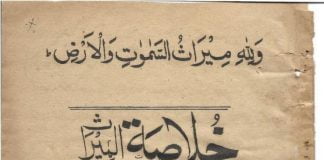 وَلِلّٰهِ مِیْرَاثُ السَّمٰوٰتِ وَالْاَرْضِ ؕ
خُلاصَة المِیْرَاث